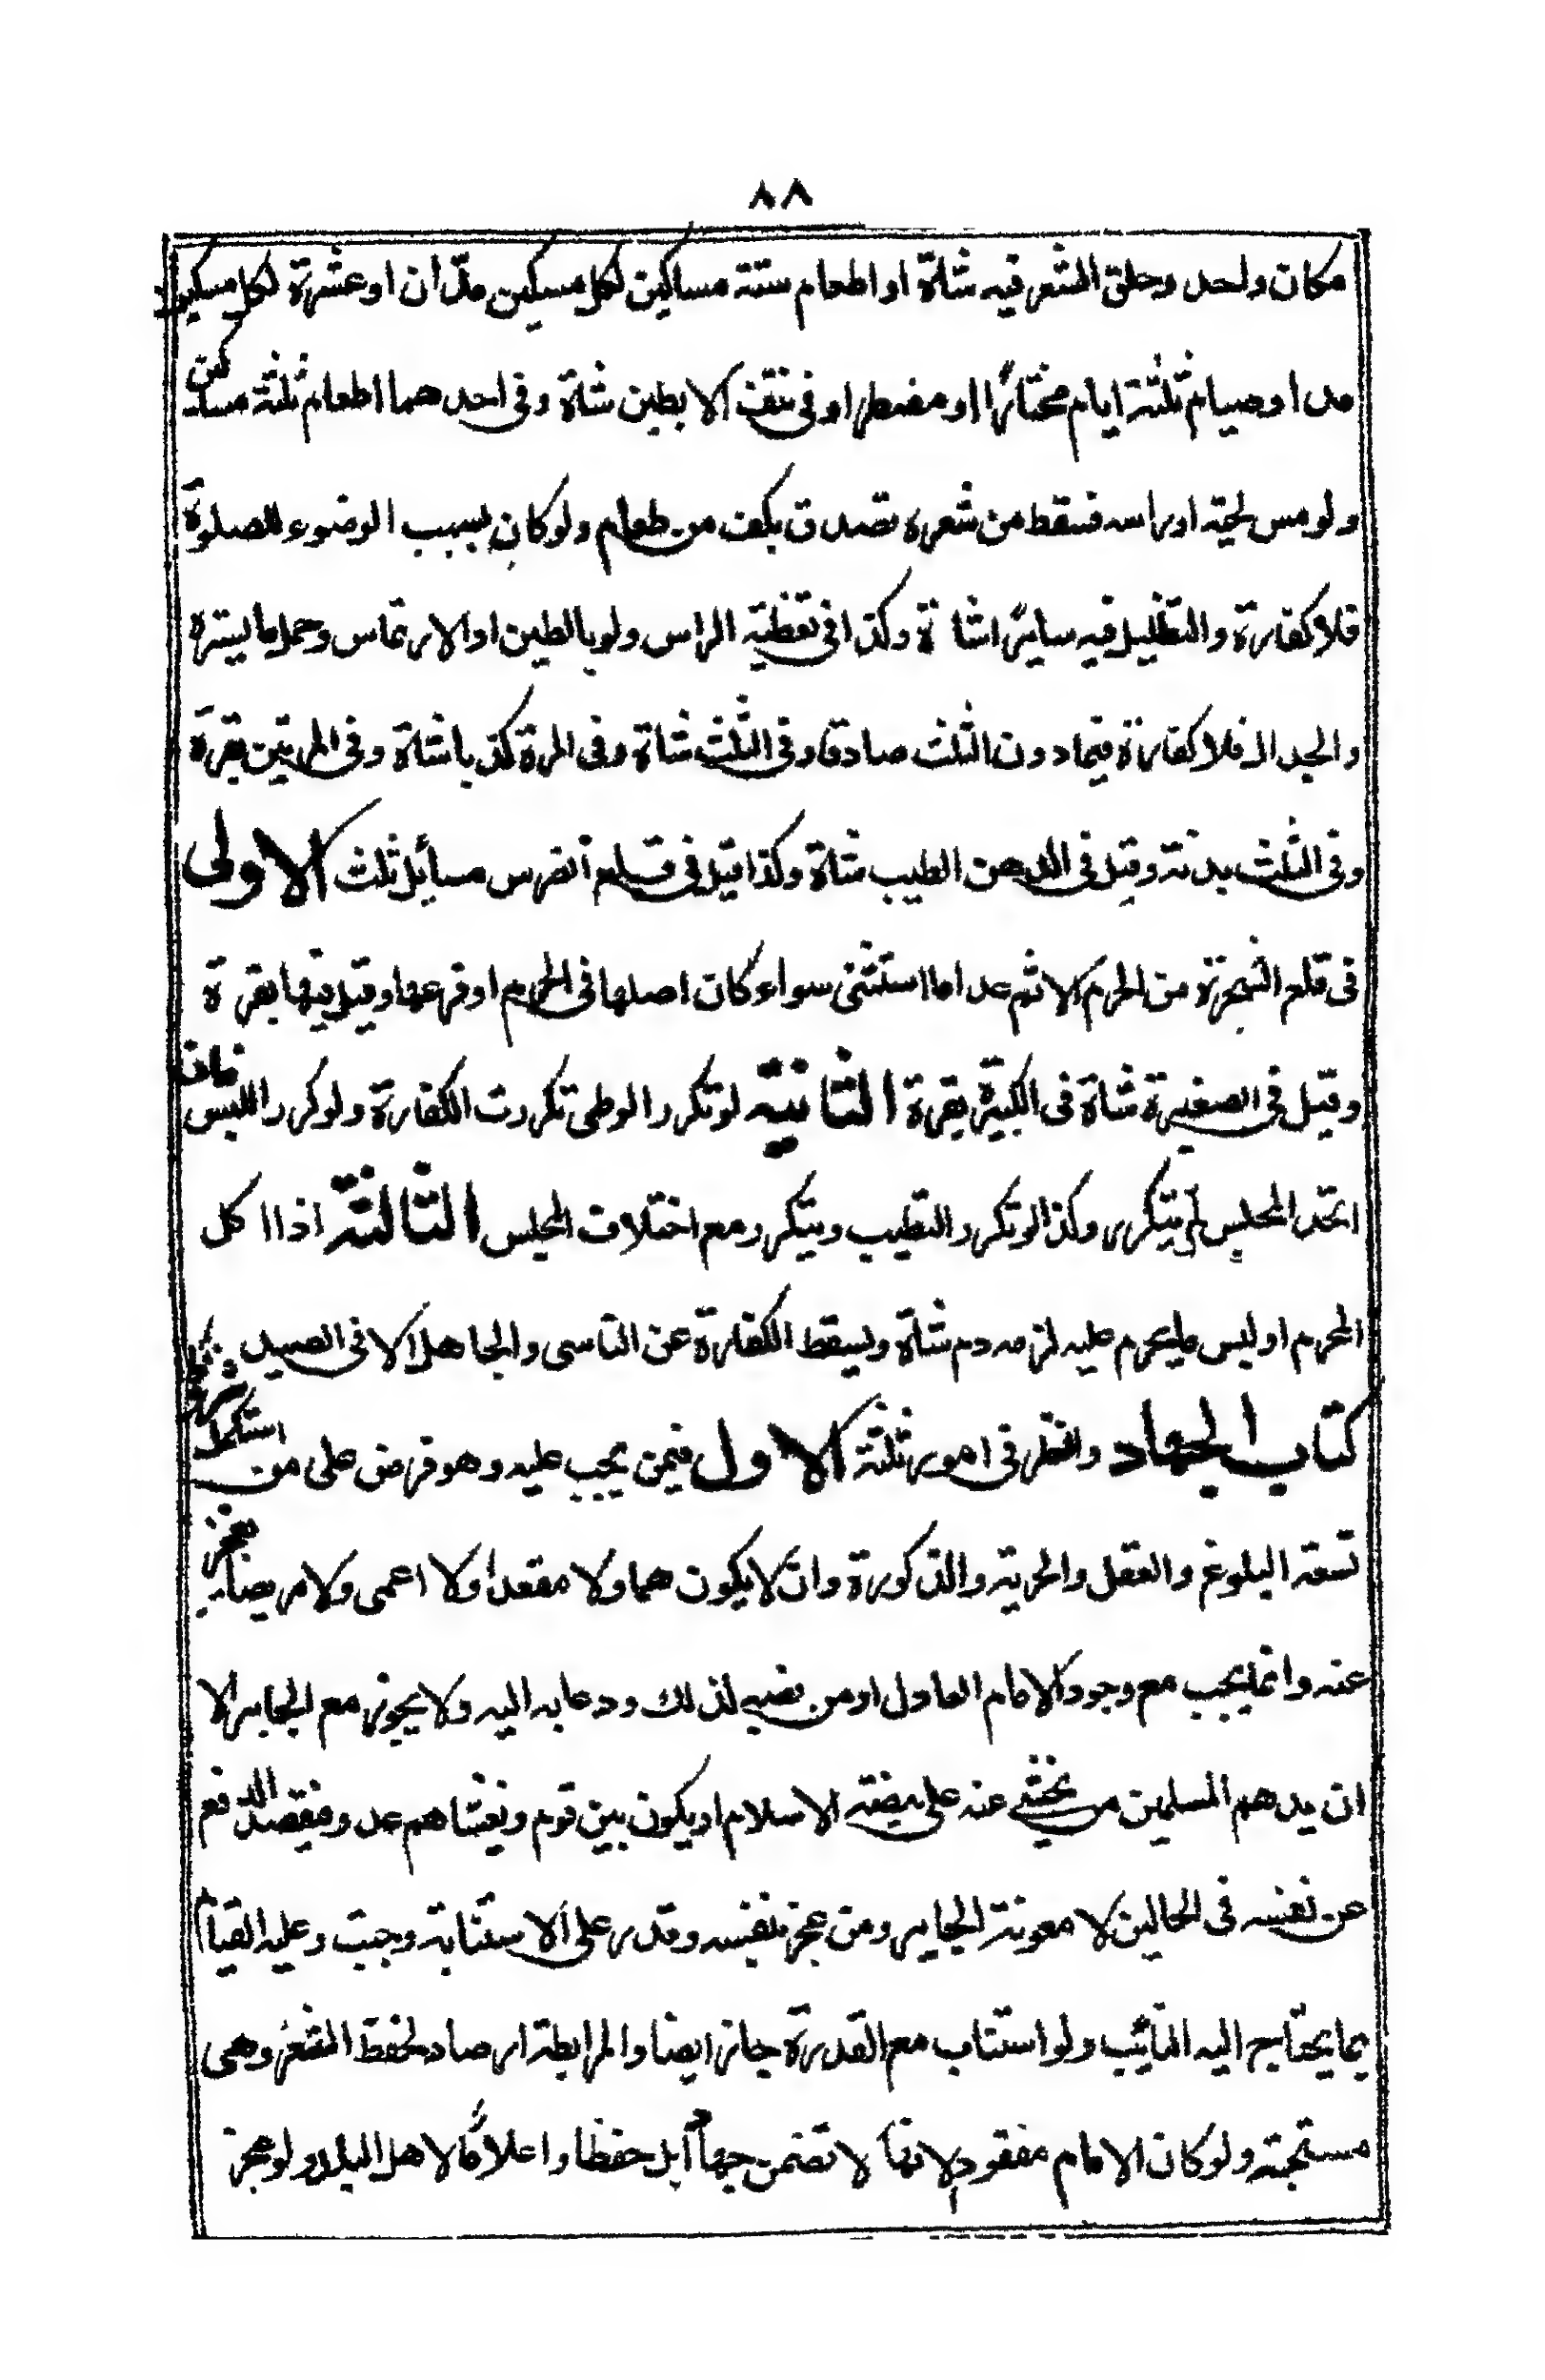 ٨٨
مكان واحد وحلق الشعر فيه شاة او اطعام ستة مساكين لكل مسكين مدّان او عشرة لكل مسكين
مد او صيام ثلثة ايام مختارًا او مضطرا وفى نتف الابطين شاة وفى احدهما اطعام ثلثة مساكين
ولو مس لحيته او راسه فسقط من شعره تصدق بكف من طعام ولو كان بسبب الوضوء للصلوة
فلا كفارة والتظليل فيه سايرًا شاة وكذا فى تغطية الراس ولو بالطين او الارتماس وحمل ما يستره
والجدال فلا كفارة فيما دون الثلث صادقا وفى الثلث شاة وفى المرة كذبا شاة وفى المرتين بقرة
وفى الثلث بدنة وقيل فى الدهن الطيب شاة وكذا قيل فى قلع الضرس مسايل ثلث الاولى
فى قلع الشجرة من الحرم الاثم عدا ما استثنى سواء كان اصلها فى الحرم او فرعها وقيل فيها بقرة
وقيل فى الصغيرة شاة فى الكبيرة بقرة الثانية لو تكرر الوطى تكررت الكفارة ولو كرر اللبس فان
اتحد المجلس لم يتكرر وكذا لو تكرر التطيب ويتكرر مع اختلاف المجلس الثالثة اذا اكل
المحرم او لبس ما يحرم عليه لزمه دم شاة ويسقط الكفارة عن الناسى والجاهل الا فى الصيد
كتاب الجهاد والنظر فى امور ثلثة الاول فيمن يجب عليه وهو فرض على من استكمل
تسعة البلوغ والعقل والحرية والذكورة وان لا يكون هما ولا مقعدا ولا اعمى ولا مريضا يعجز
عنه وانما يجب مع وجود الامام العادل او من نصبه لذلك ودعا به اليه ولا يجوز مع الجاير الا
ان يدهم المسلمين من يخشى عنه على بيضة الاسلام او يكون بين قوم ويغشاهم عدو فيقصد الدفع
عن نفسه فى الحالين لا معونة الجاير ومن عجز بنفسه وقدر على الاستنابة وجبت وعليه القيام
بما يحتاج اليه النايب ولو استناب مع القدرة جاز ايضا والمرابطة ارصاد لحفظ الثغر وهى
مستحبة ولو كان الامام مفقودا لانها لا تضمن جهادًا بل حفظا واعلامًا لاهل البلد ولو عجز